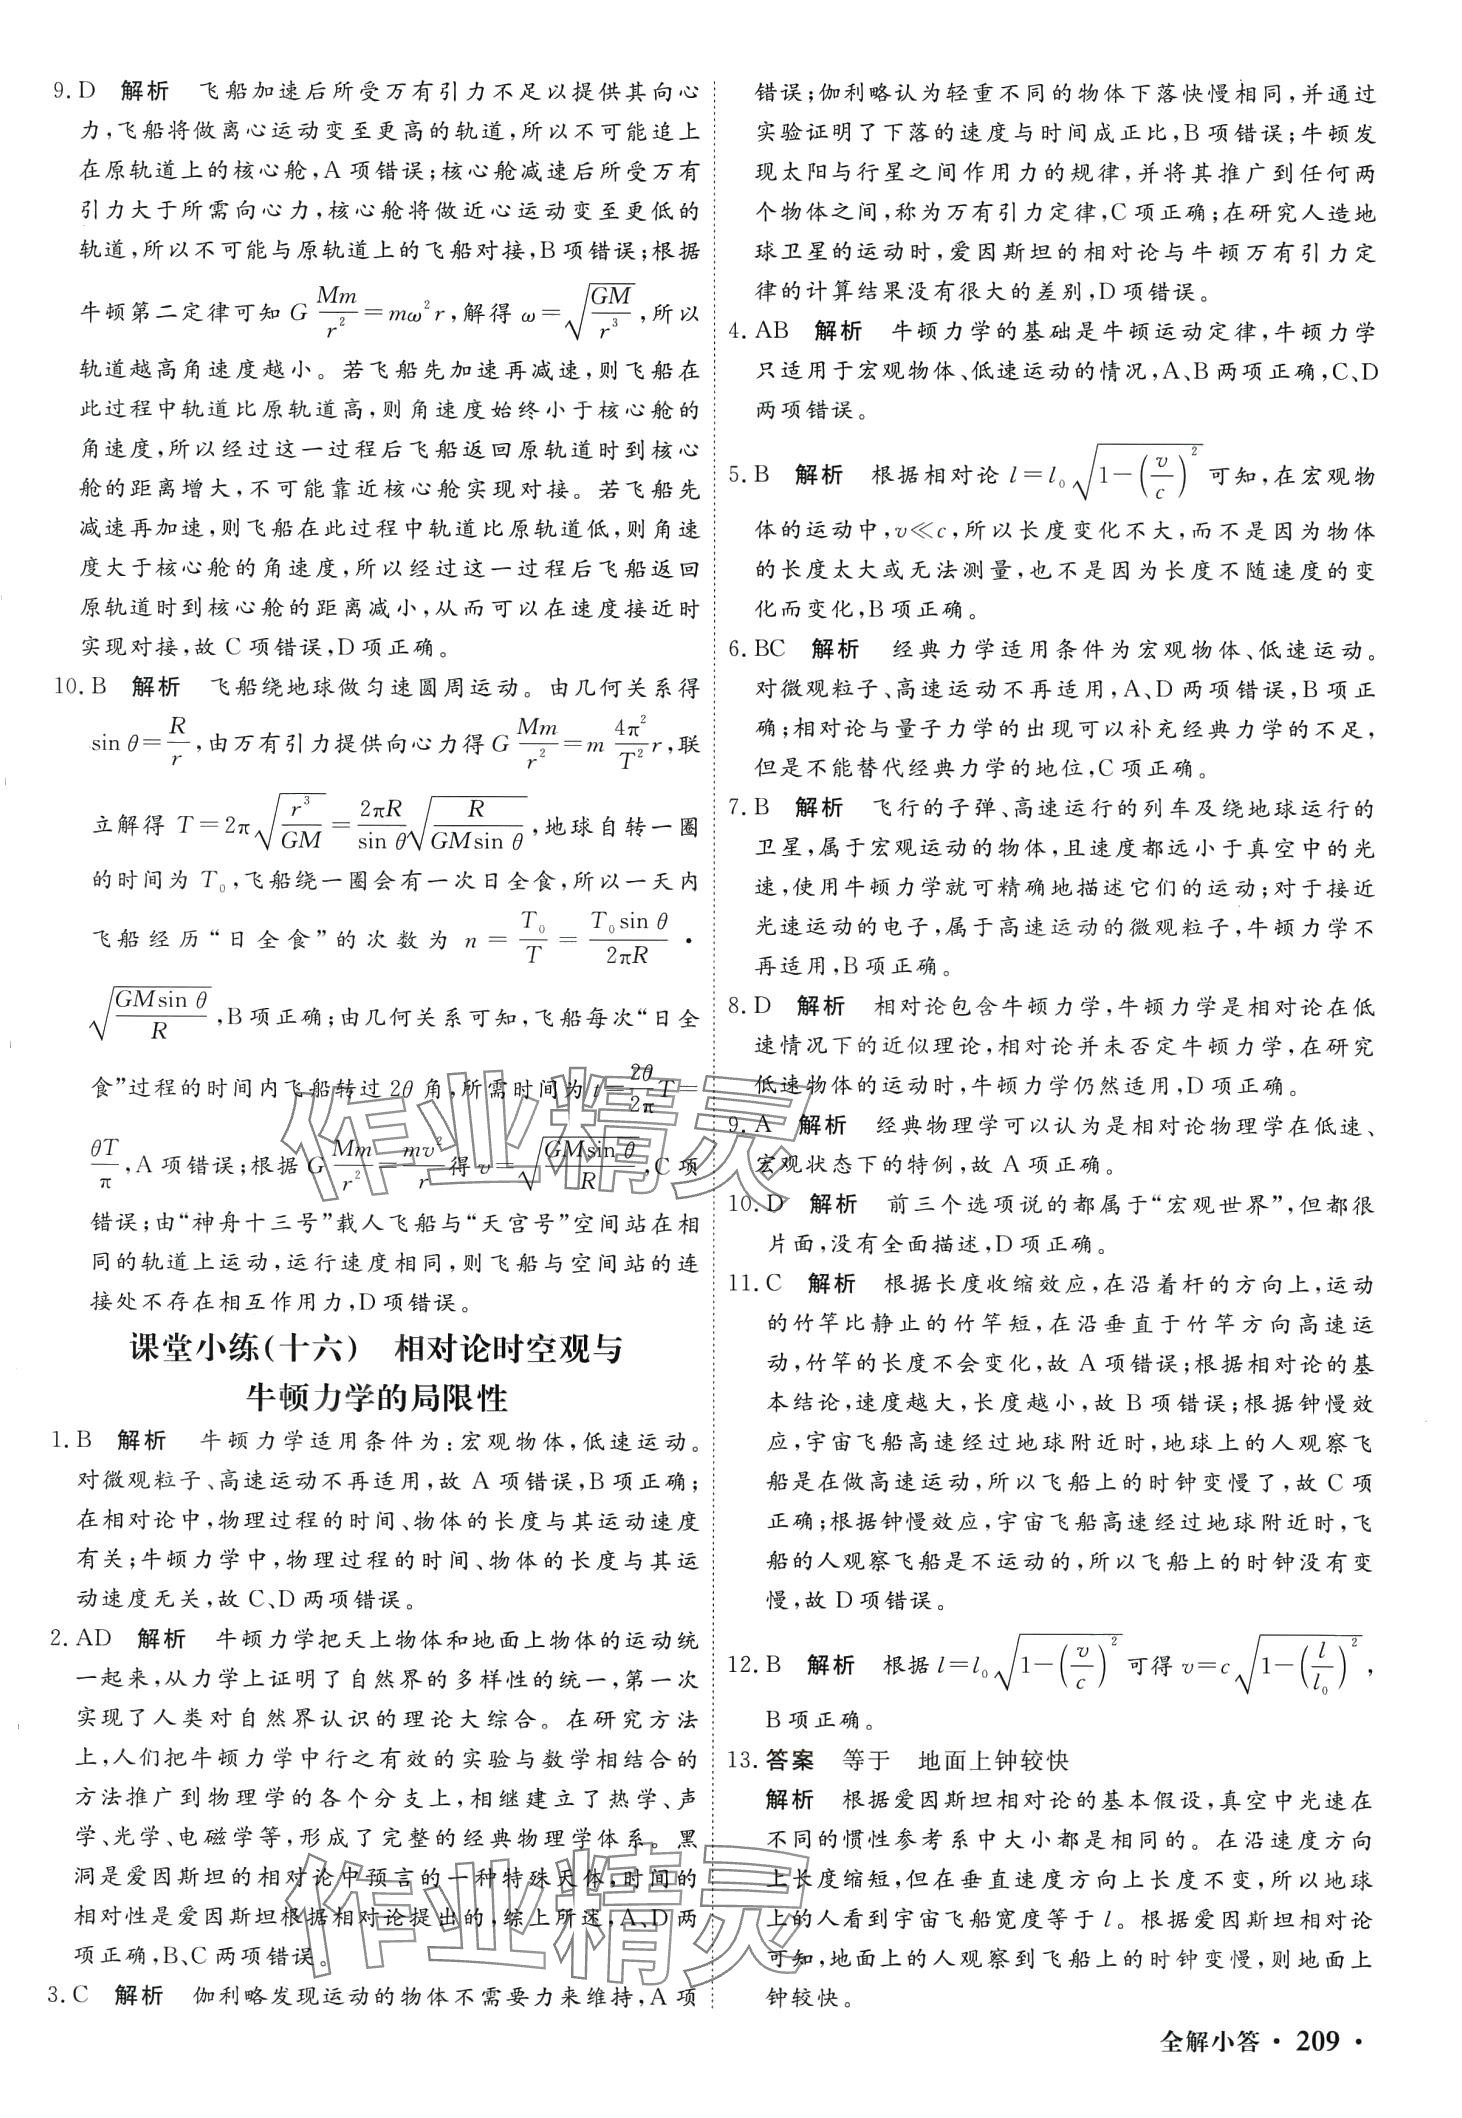 9. D 解析 飞船加速后所受万有引力不足以提供其向心
力,飞船将做离心运动变至更高的轨道,所以不可能追上
在原轨道上的核心舱,A 项错误;核心舱减速后所受万有
引力大于所需向心力,核心舱将做近心运动变至更低的
轨道,所以不可能与原轨道上的飞船对接,B 项错误;根据
牛顿第二定律可知 G\frac{Mm}{r^2}=mω^2r,解得 ω=\sqrt{\frac{GM}{r^3}},所以
轨道越高角速度越小。若飞船先加速再减速,则飞船在
此过程中轨道比原轨道高,则角速度始终小于核心舱的
角速度,所以经过这一过程后飞船返回原轨道时到核心
舱的距离增大,不可能靠近核心舱实现对接。若飞船先
减速再加速,则飞船在此过程中轨道比原轨道低,则角速
度大于核心舱的角速度,所以经过这一过程后飞船返回
原轨道时到核心舱的距离减小,从而可以在速度接近时
实现对接,故 C 项错误,D 项正确。
10. B 解析 飞船绕地球做匀速圆周运动。由几何关系得
sin θ=\frac{R}{r},由万有引力提供向心力得 G\frac{Mm}{r^2}=m\frac{4π^2}{T^2}r,联
立解得 T=2π\sqrt{\frac{r^3}{GM}}=\frac{2πR}{sin θ}\sqrt{\frac{R}{GMsin θ}},地球自转一圈
的时间为 T_0,飞船绕一圈会有一次日全食,所以一天内
飞船经历“日全食”的次数为 n=\frac{T_0}{T}=\frac{T_0sin θ}{2πR}·
\sqrt{\frac{GMsin θ}{R}},B 项正确;由几何关系可知,飞船每次“日全
食”过程的时间内飞船转过 2θ 角,所需时间为 t=\frac{2θ}{2π}T=
\frac{θT}{π},A 项错误;根据 G\frac{Mm}{r^2}=\frac{mv^2}{r}得 v=\sqrt{\frac{GMsin θ}{R}},C 项
错误;由“神舟十三号”载人飞船与“天宫号”空间站在相
同的轨道上运动,运行速度相同,则飞船与空间站的连
接处不存在相互作用力,D 项错误。
课堂小练(十六) 相对论时空观与
牛顿力学的局限性
1. B 解析 牛顿力学适用条件为:宏观物体,低速运动。
对微观粒子、高速运动不再适用,故 A 项错误,B 项正确;
在相对论中,物理过程的时间、物体的长度与其运动速度
有关;牛顿力学中,物理过程的时间、物体的长度与其运
动速度无关,故 C、D 两项错误。
2. AD 解析 牛顿力学把天上物体和地面上物体的运动统
一起来,从力学上证明了自然界的多样性的统一,第一次
实现了人类对自然界认识的理论大综合。在研究方法
上,人们把牛顿力学中行之有效的实验与数学相结合的
方法推广到物理学的各个分支上,相继建立了热学、声
学、光学、电磁学等,形成了完整的经典物理学体系。黑
洞是爱因斯坦的相对论中预言的一种特殊天体,时间的
相对性是爱因斯坦根据相对论提出的,综上所述,A、D 两
项正确,B、C 两项错误。
3. C 解析 伽利略发现运动的物体不需要力来维持,A 项
错误;伽利略认为轻重不同的物体下落快慢相同,并通过
实验证明了下落的速度与时间成正比,B 项错误;牛顿发
现太阳与行星之间作用力的规律,并将其推广到任何两
个物体之间,称为万有引力定律,C 项正确;在研究人造地
球卫星的运动时,爱因斯坦的相对论与牛顿万有引力定
律的计算结果没有很大的差别,D 项错误。
4. AB 解析 牛顿力学的基础是牛顿运动定律,牛顿力学
只适用于宏观物体、低速运动的情况,A、B 两项正确,C、D
两项错误。
5. B 解析 根据相对论 l=l_0\sqrt{1-(\frac{v}{c})^2}可知,在宏观物
体的运动中,v≪c,所以长度变化不大,而不是因为物体
的长度太大或无法测量,也不是因为长度不随速度的变
化而变化,B 项正确。
6. BC 解析 经典力学适用条件为宏观物体、低速运动。
对微观粒子、高速运动不再适用,A、D 两项错误,B 项正
确;相对论与量子力学的出现可以补充经典力学的不足,
但是不能替代经典力学的地位,C 项正确。
7. B 解析 飞行的子弹、高速运行的列车及绕地球运行的
卫星,属于宏观运动的物体,且速度都远小于真空中的光
速,使用牛顿力学就可精确地描述它们的运动;对于接近
光速运动的电子,属于高速运动的微观粒子,牛顿力学不
再适用,B 项正确。
8. D 解析 相对论包含牛顿力学,牛顿力学是相对论在低
速情况下的近似理论,相对论并未否定牛顿力学,在研究
低速物体的运动时,牛顿力学仍然适用,D 项正确。
9. A 解析 经典物理学可以认为是相对论物理学在低速、
宏观状态下的特例,故 A 项正确。
10. D 解析 前三个选项说的都属于“宏观世界”,但都很
片面,没有全面描述,D 项正确。
11. C 解析 根据长度收缩效应,在沿着杆的方向上,运动
的竹竿比静止的竹竿短,在沿垂直于竹竿方向高速运
动,竹竿的长度不会变化,故 A 项错误;根据相对论的基
本结论,速度越大,长度越小,故 B 项错误;根据钟慢效
应,宇宙飞船高速经过地球附近时,地球上的人观察飞
船是在做高速运动,所以飞船上的时钟变慢了,故 C 项
正确;根据钟慢效应,宇宙飞船高速经过地球附近时,飞
船的人观察飞船是不运动的,所以飞船上的时钟没有变
慢,故 D 项错误。
12. B 解析 根据 l=l_0\sqrt{1-(\frac{v}{c})^2}可得 v=c\sqrt{1-(\frac{l}{l_0})^2},
B 项正确。
13. 答案 等于 地面上钟较快
解析 根据爱因斯坦相对论的基本假设,真空中光速在
不同的惯性参考系中大小都是相同的。在沿速度方向
上长度缩短,但在垂直速度方向上长度不变,所以地球
上的人看到宇宙飞船宽度等于 l。根据爱因斯坦相对论
可知,地面上的人观察到飞船上的时钟变慢,则地面上
钟较快。
全解小答 · 209 ·
作业精灵
作业精灵